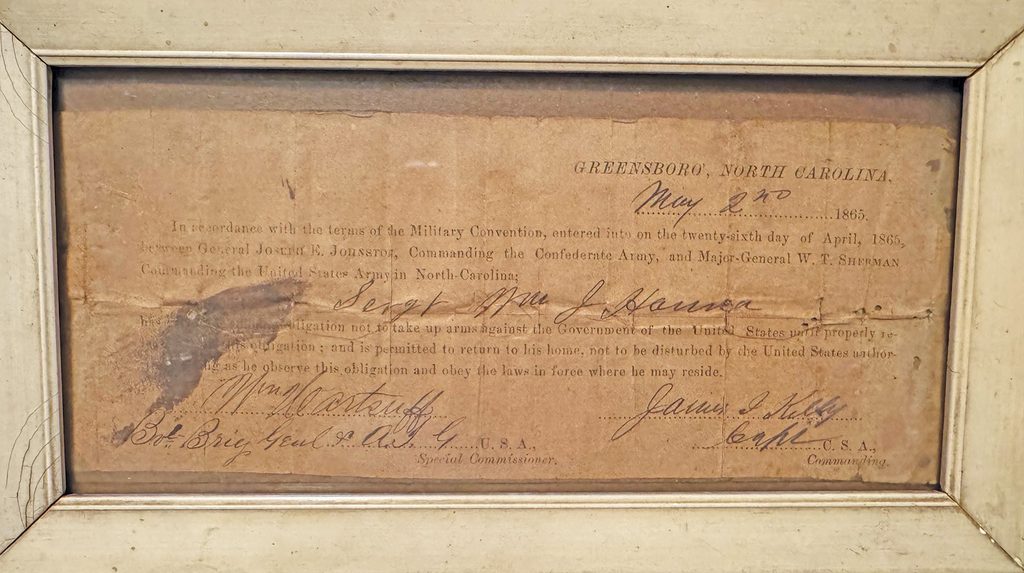 GREENSBORO', NORTH CAROLINA,
May 2nd 1865.
In accordance with the terms of the Military Convention, entered into on the twenty-sixth day of April, 1865,
between General JOSEPH E. JOHNSTON, Commanding the Confederate Army, and Major-General W. T. SHERMAN
Commanding the United States Army in North-Carolina;
Sergt Wm J Hanna
has obligation not to take up arms against the Government of the United States until properly re-
this obligation; and is permitted to return to his home, not to be disturbed by the United States author-
as he observe this obligation and obey the laws in force where he may reside.
Wm Hartsuff James J. Kelly
Bvt Brig Genl & A.I.G. U. S. A., Capt C. S. A.,
Special Commissioner. Commanding.